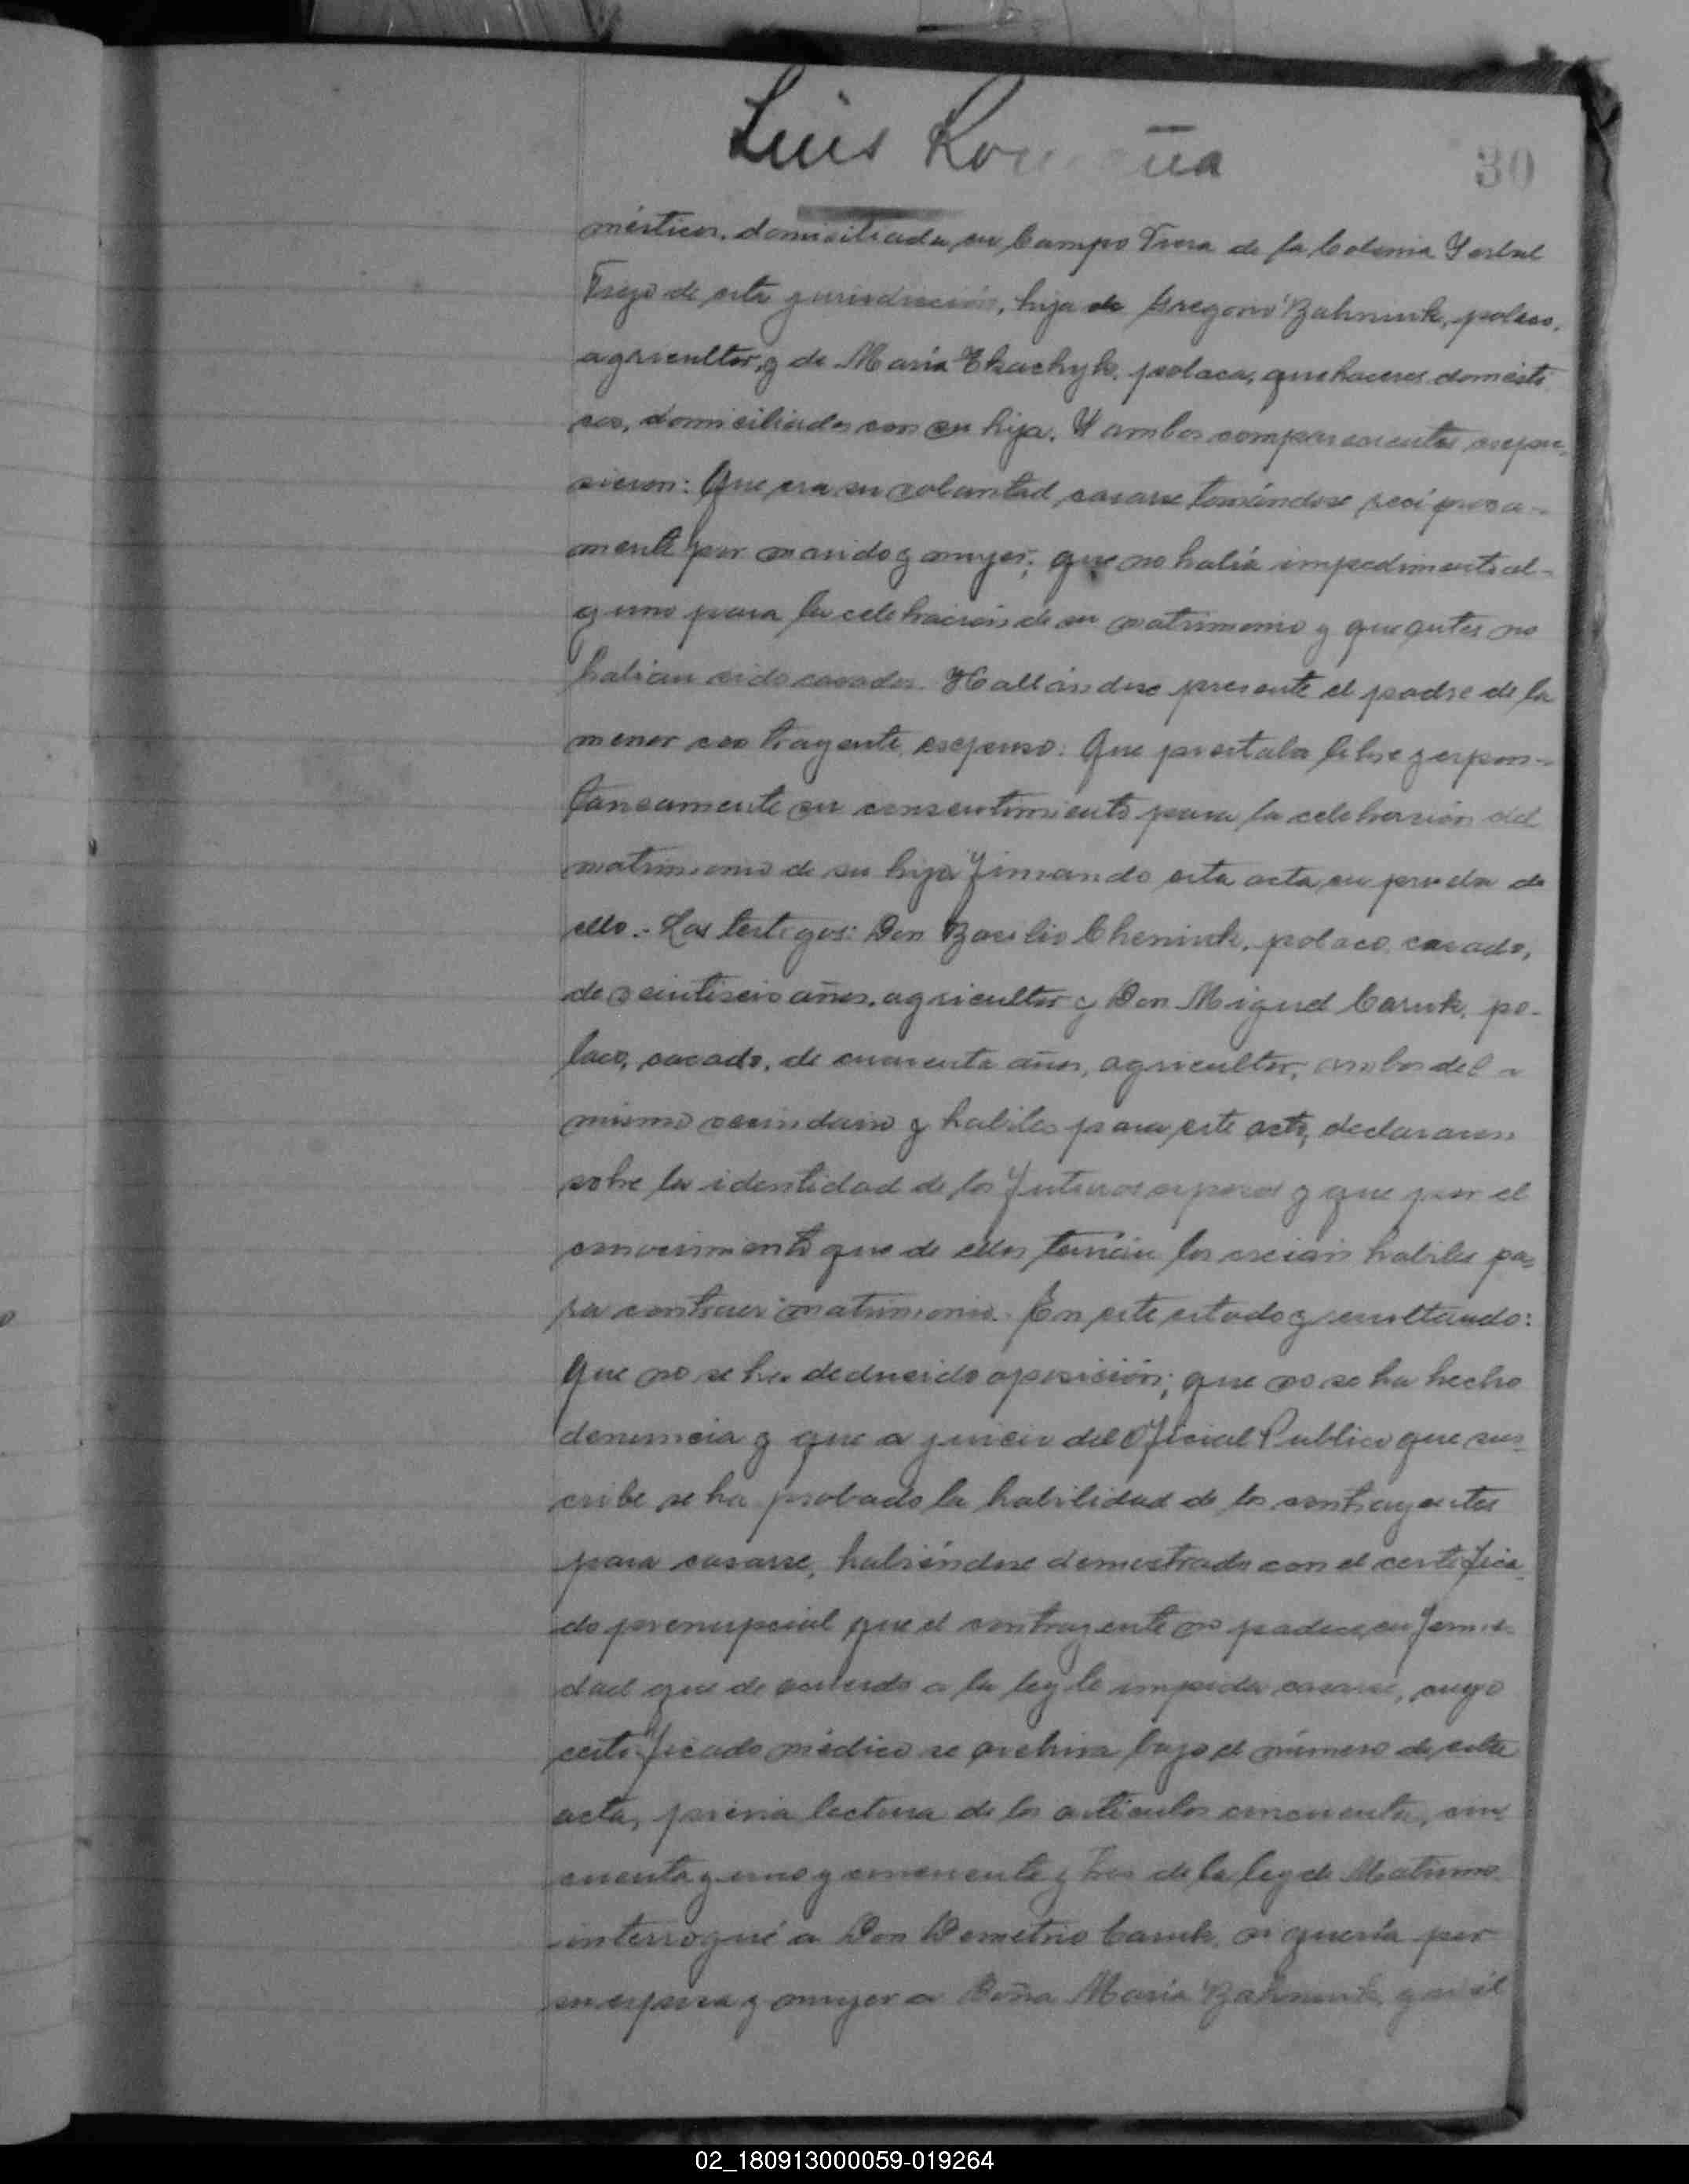 Luis
30
mésticos, domiciliada en Campo Tres de la Colonia Yerbal
Trejo de esta jurisdicción, hija de Gregorio Bahniuk, polaco,
agricultor, y de María Tkachyk, polaca, quehaceres domésti
cos, domiciliados con su hija. Y ambos comparecientes expu-
sieron: Que era su voluntad casarse tomándose recíproca-
mente por marido y mujer; que no había impedimento al-
guno para la celebración de su matrimonio y que antes no
habían sido casados. Hallándose presente el padre de la
menor contrayente, expuso: Que prestaba libre y espon-
táneamente su consentimiento para la celebración del
matrimonio de su hija firmando esta acta en prueba de
ello.- Los testigos: Don Basilio Cheniuk, polaco, casado,
de veintiseis años, agricultor y Don Miguel Caruk, po-
laco, casado, de cuarenta años, agricultor, ambos del
mismo vecindario y habiles para este acto, declararon
sobre la identidad de los futuros esposos y que por el
conocimiento que de ellos tenían los creían habiles pa-
ra contraer matrimonio. En este estado y resultando:
Que no se ha deducido oposición; que no se ha hecho
denuncia y que a juicio del Oficial Publico que sus-
cribe se ha probado la habilidad de los contrayentes
para casarse, habiéndose demostrado con el certifica
do prenupcial que el contrayente no padece enferme-
dad que de acuerdo a la ley le impida casarse, cuyo
certificado médico se archiva bajo el número de esta
acta, previa lectura de los articulos cincuenta, cin-
cuenta y uno y cincuenta y tres de la ley de Matrimo
interrogué a Don Demetrio Caruk, si quería por
su esposa y mujer a Doña María Bahniuk, y si él
02_180913000059-019264